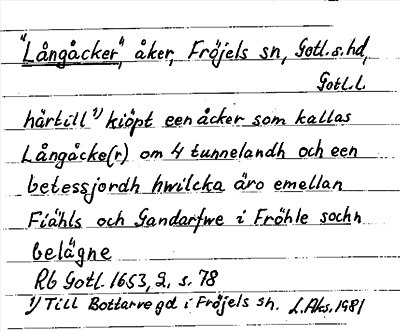 "Långåcker", åker, Fröjels sn, Gotl.s.hd,
Gotl.l.
härtill 1) kiöpt een åcker som kallas
Långåcke(r) om 4 tunnelandh och een
betessjordh hwilcka äro emellan
Fiähls och Gandarfwe i Fröhle sochn
belägne
Rb Gotl. 1653, 2. s. 78
1) Till Bottarve gd i Fröjels sn. L.Aks. 1981